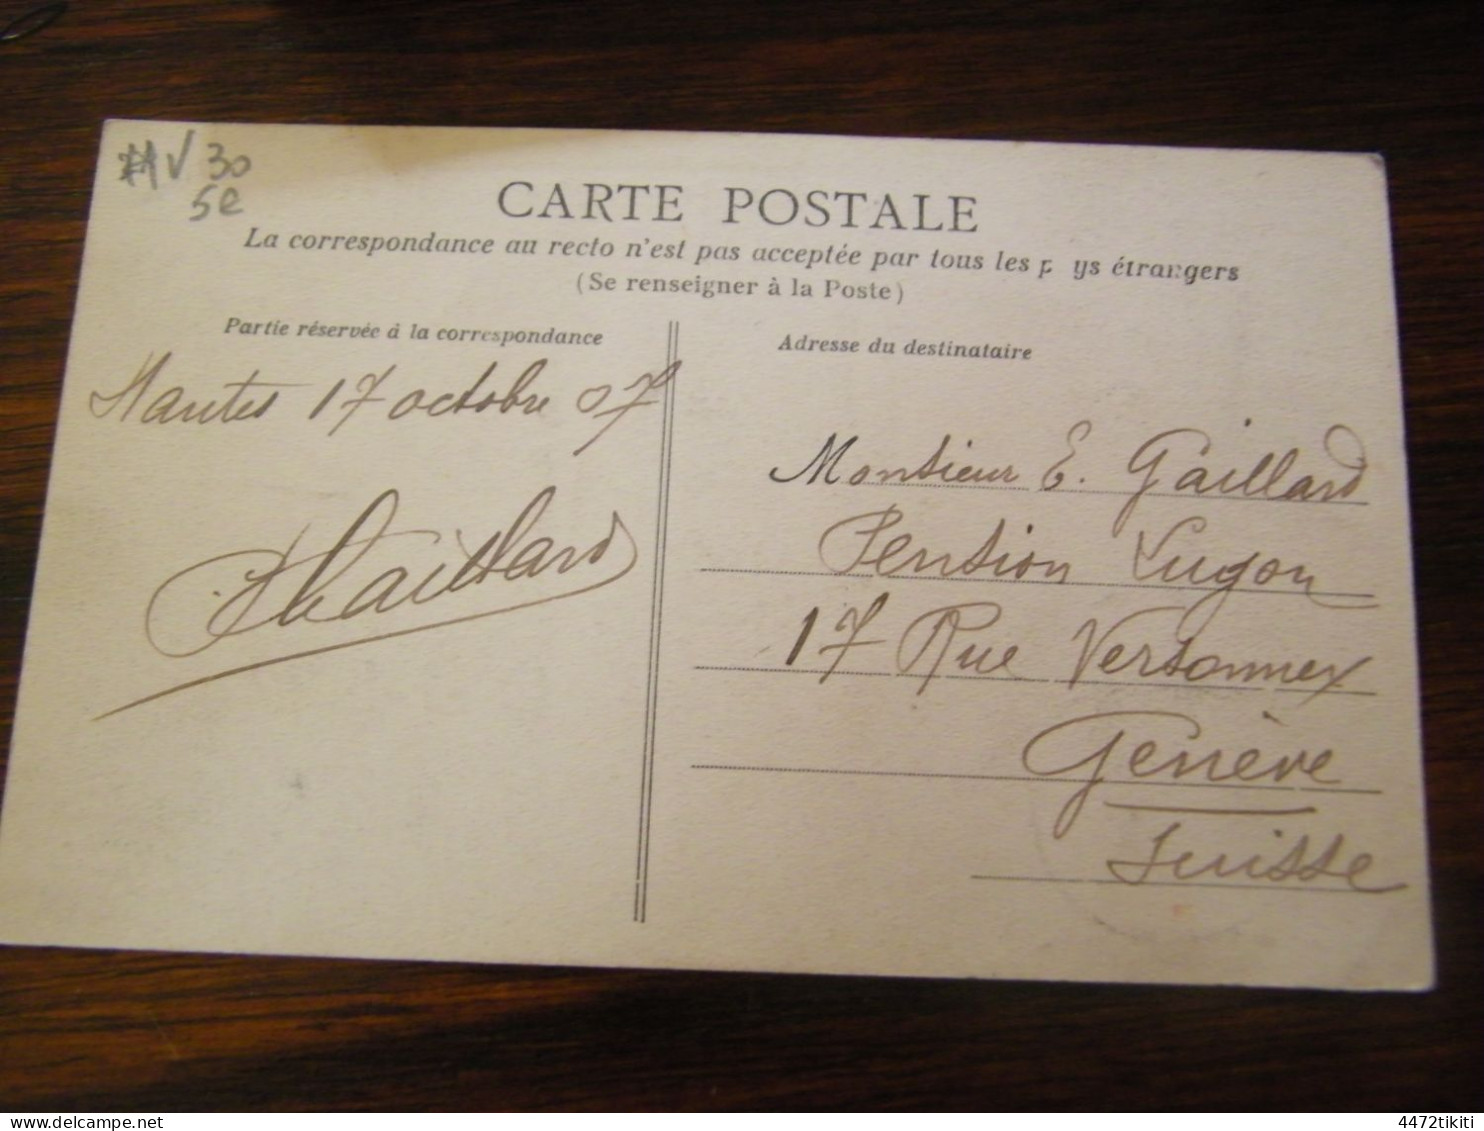 30
5e
CARTE POSTALE
La correspondance au recto n'est pas acceptée par tous les p ys étrangers
(Se renseigner à la Poste)
Partie réservée à la correspondance
Nantes 17 octobre 07
Gaillard
Adresse du destinataire
Monsieur E. Gaillard
Pension Lugon
17 Rue Versonnex
Genève
Suisse
4472tikiti